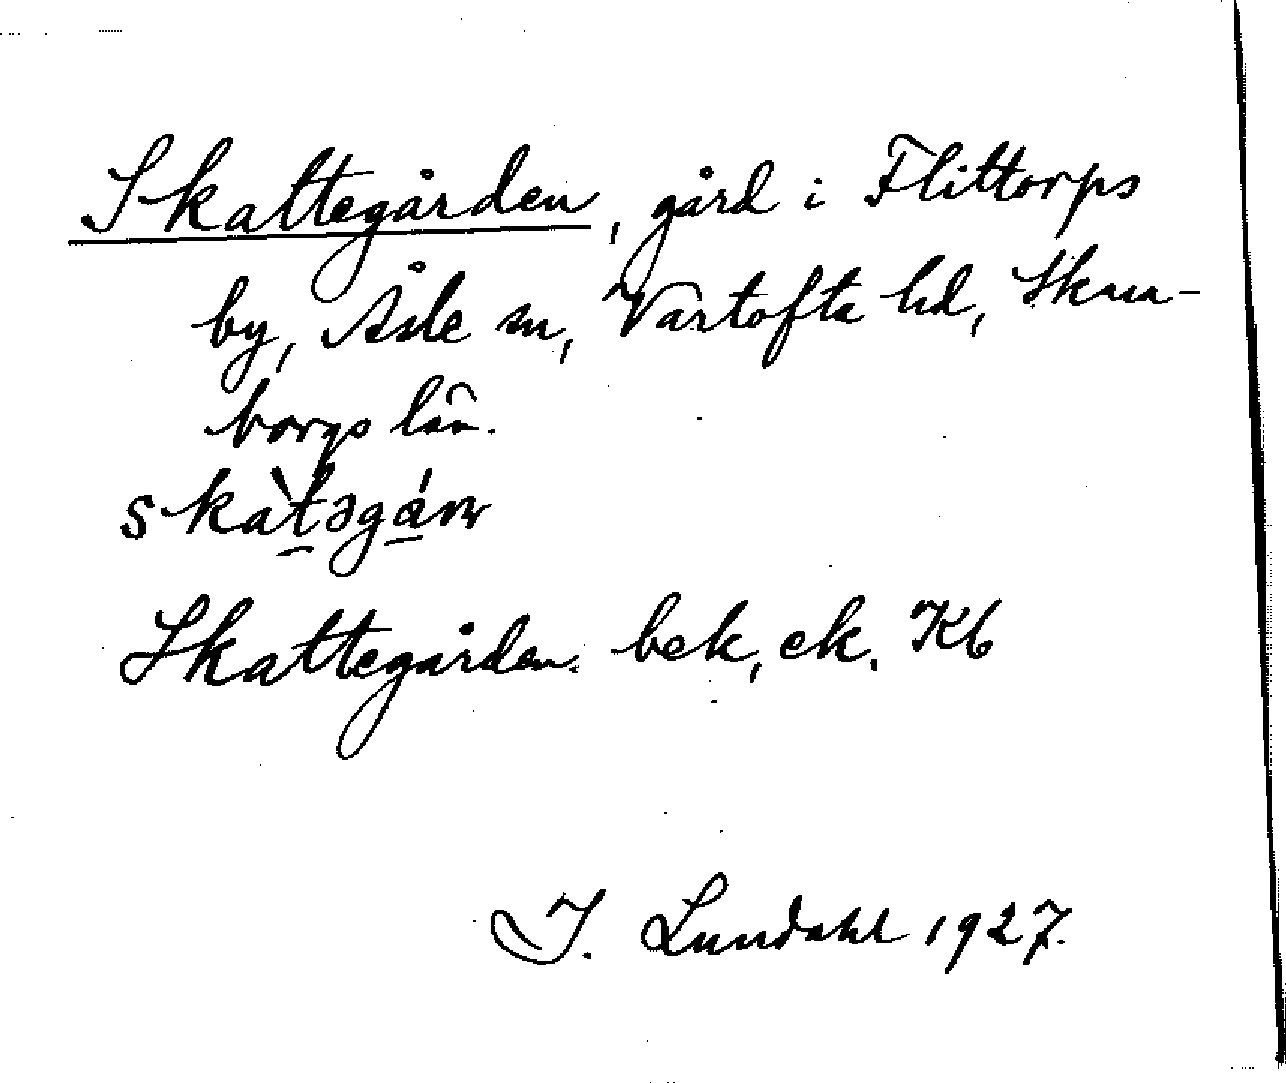 Skattegården, gård i Flittorps
by, Åsle sn, Vartofta hd, Skara-
borgs län.
skàtəgán
Skattegården bek, ek. Kb
I. Lundahl 1927.